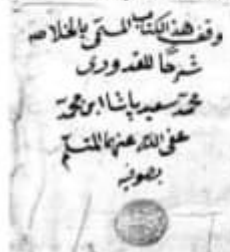 وقف هذا الكتاب المسمى بالخلاصه
شرحًا للقدورى
محمد سعيد پاشا ابن محمد
عفى الله عنهما